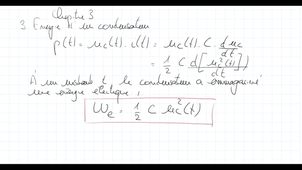 Chapitre 3
3. Energie d'un condensateur
p(t) = uc(t). i(t) = uc(t). C. duc/dt
= 1/2 C d[uc²(t)]/dt
À un instant t, le condensateur a emmagasiné
une énergie électrique :
We = 1/2 C uc²(t)